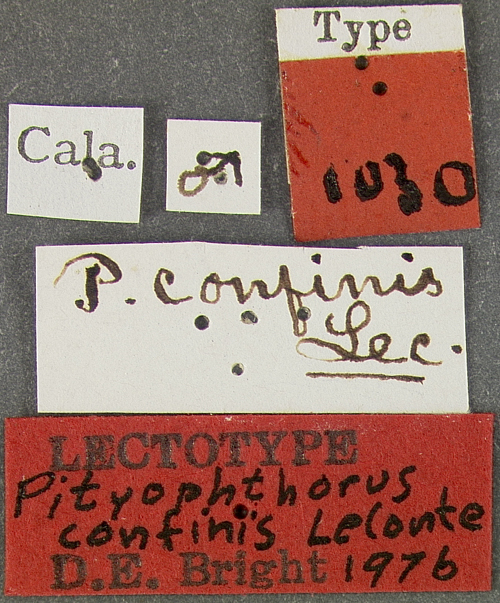 Type
1030
Cala.
♂
P. confinis
Lec.
LECTOTYPE
Pityophthorus
confinis LeConte
D.E. Bright 1976